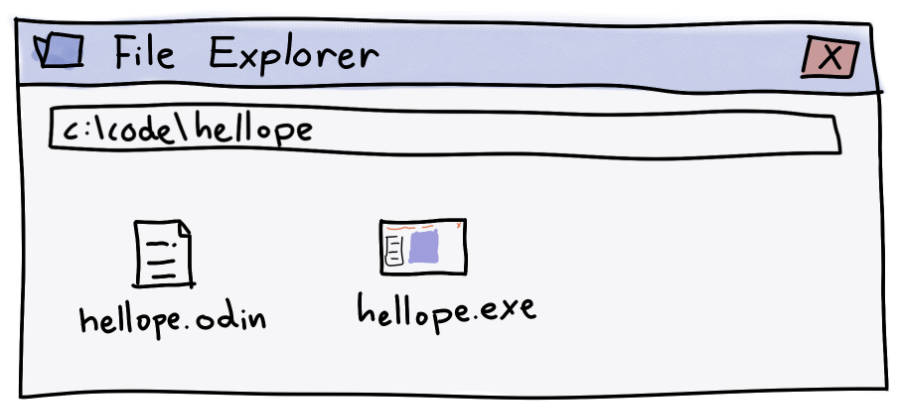 File Explorer X
c:\code\hellope
hellope.odin hellope.exe